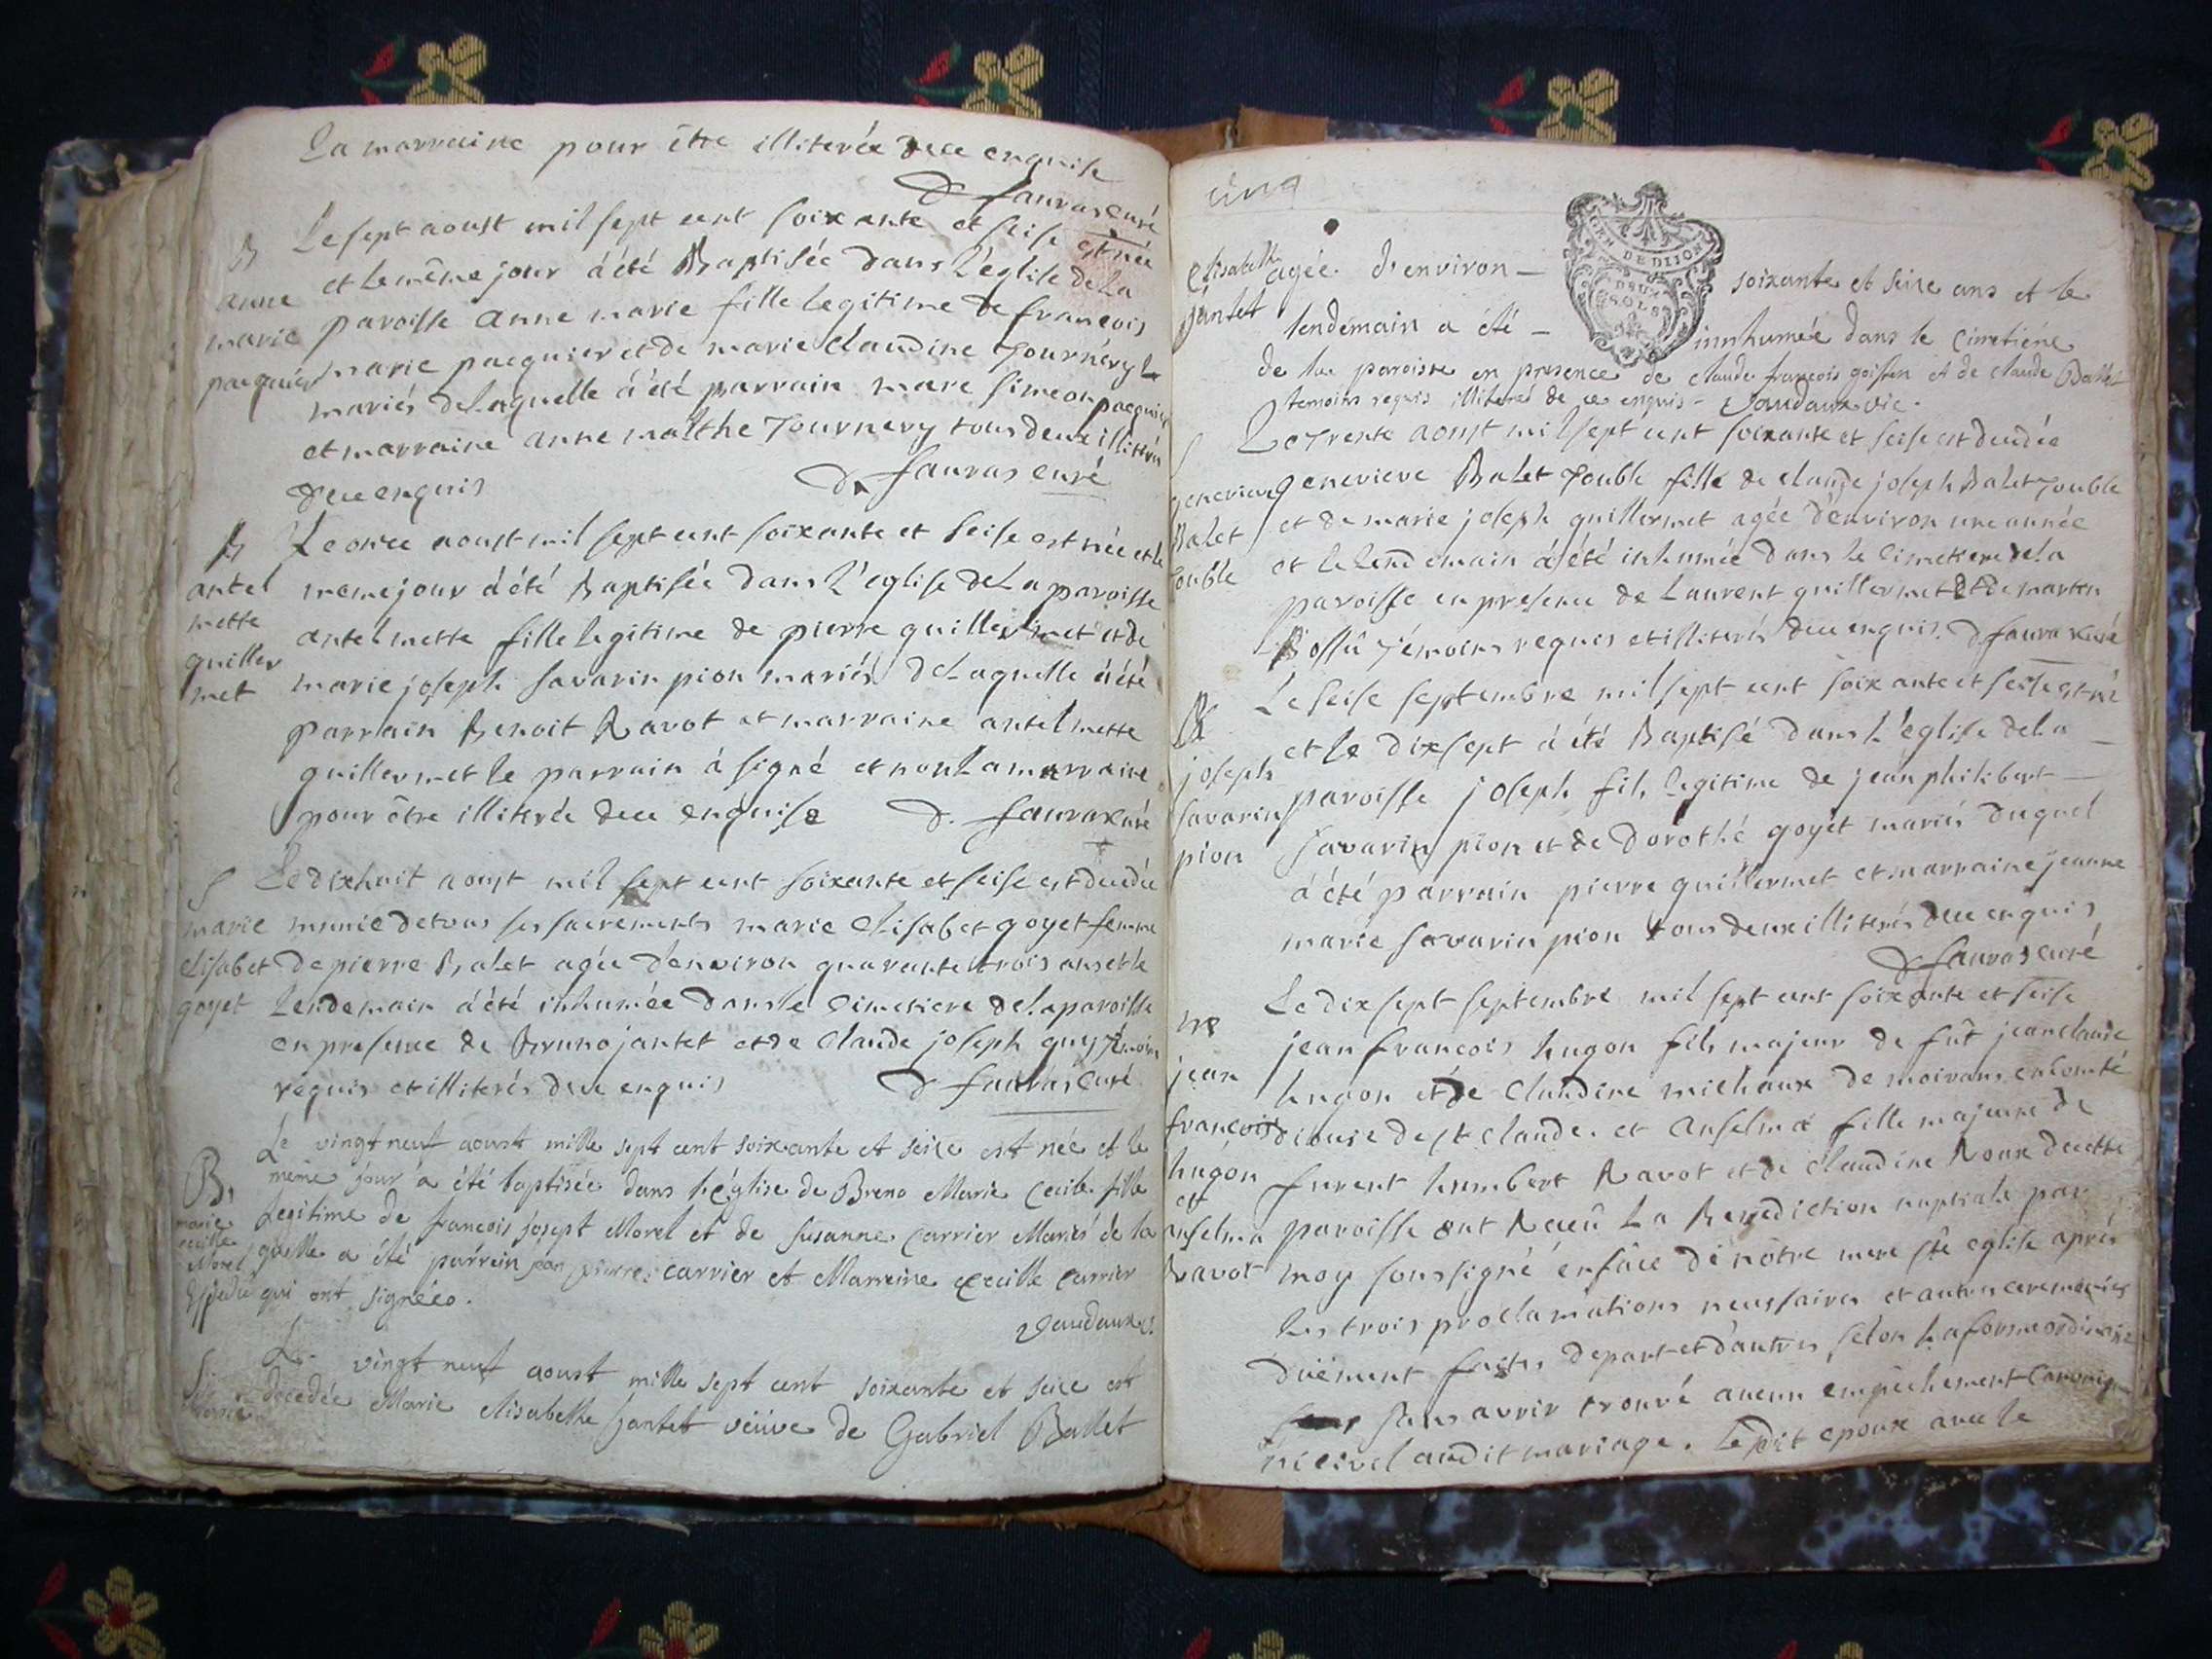 La marraine pour être illiterée de ce enquise
D fauvas curé
B
anne
marie
pacquier
Le sept aoust mil sept cent soixante et seise est née
et le même jour a été Baptisée dans L'église de La
paroisse anne marie fille legitime de francois
marie pacquier et de marie claudine Tournery
mariés de Laquelle a été parrain marc simeon pacquier
et marraine anne malthe Tournery tous deux illiterés
de ce enquis
D fauvas curé
B
antel
mette
guiller
met
Le onze aoust mil sept cent soixante et seise est née et le
meme jour a été Baptisée dans L'eglise de La paroisse
antelmette fille legitime de pierre guillermet et de
marie joseph savarin pion mariés de Laquelle a été
parrain Benoit Ravot et marraine antelmette
guillermet le parrain a signé et non La marraine
pour être illiterée de ce enquise D. fauvas curé
S
marie
elisabet
goyet
Le dixhuit aoust mil sept cent soixante et seise est decedée
munie de tous ses sacrements marie Elisabet goyet femme
de pierre Balet agée d'environ quarante trois ans et le
Lendemain a été inhumée dans le Cimetiere de La paroisse
en presence de Bruno jantet et de Claude joseph guy témoins
requis et illiterés de ce enquis D fauvas Curé
B,
marie
cecille
Morel
Le vingt neuf aoust mille sept cent soixante et seize est née et le
même jour a été baptisée dans L'église de Breno Marie Cecile fille
Legitime de francois josept Morel et de susanne Carrier Mariés de la
quelle a été parrein jean pierre Carrier et Marreine Cecille Carrier
qui ont signééo.
Vaudaux v.
S
Marie
Le vingt neuf aoust mille sept cent soixante et seize est
decedée Marie elisabethe jantet veüve de Gabriel Ballet
cinq
GEN DE DIJON
DEUX
SOLS
Elisabethe
jantet
agée d'environ — soixante et seize ans et le
lendemain a été — innhumée dans le Cimetiére
de la paroisse en presence de claude francois goiffon et de claude Ballet
temoins requis illiteré de ce enquis - Vaudaux vic.
S
genevieve
Balet
Touble
Le Trente aoust mil sept cent soixante et seise est decedée
genevieve Balet Touble fille de claude joseph Balet Touble
et de marie joseph guillermet agée d'environ une année
et le lendemain a été inhumée dans le Cimetiere de la
paroisse en presence de Laurent guillermet et de marten
Bossû Témoins requis et illiterés de ce enquis. D fauvas curé
B
joseph
savarin
pion
Le seise septembre mil sept cent soixante et seise est né
et le dixsept a été Baptisé dans L'église de La —
paroisse joseph fils legitime de jean philibert —
savarin pion et de Dorothé goyet mariés duquel
a été parrain pierre guillermet et marraine jeanne
marie savarin pion tous deux illiterés de ce enquis
D fauvas curé
m
jean
francois
hugon
et
anselma
Ravot
Le dix sept septembre mil sept cent soixante et seise
jean francois hugon fils majeur de fût jean claude
hugon et de Claudine michaux de moirans en comté
diocise de st claude. et anselma fille majeure de
furent humbert Ravot et de claudine Roux de cette
paroisse ont Receû La Benediction nuptiale par
moy soussigné en face de nôtre mere ste eglise aprés
les trois proclamations necessaires et autres ceremonies
düement faites de part et d'autres selon La forme ordinaire
sans avoir trouvé aucun empêchement Canonique
ni civel audit mariage. Ledit epoux avec le